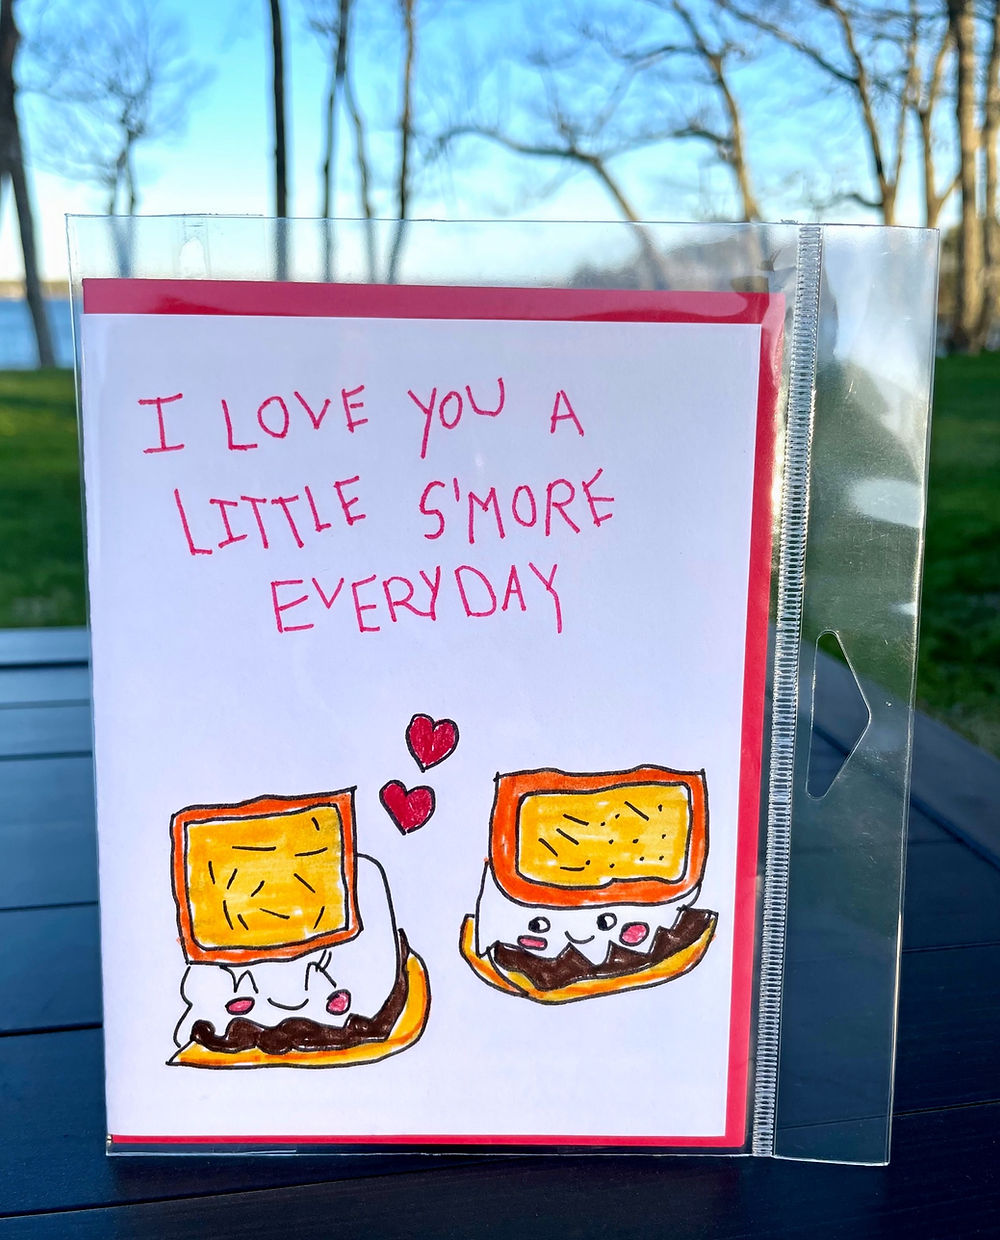 I LOVE YOU A
LITTLE S'MORE
EVERYDAY